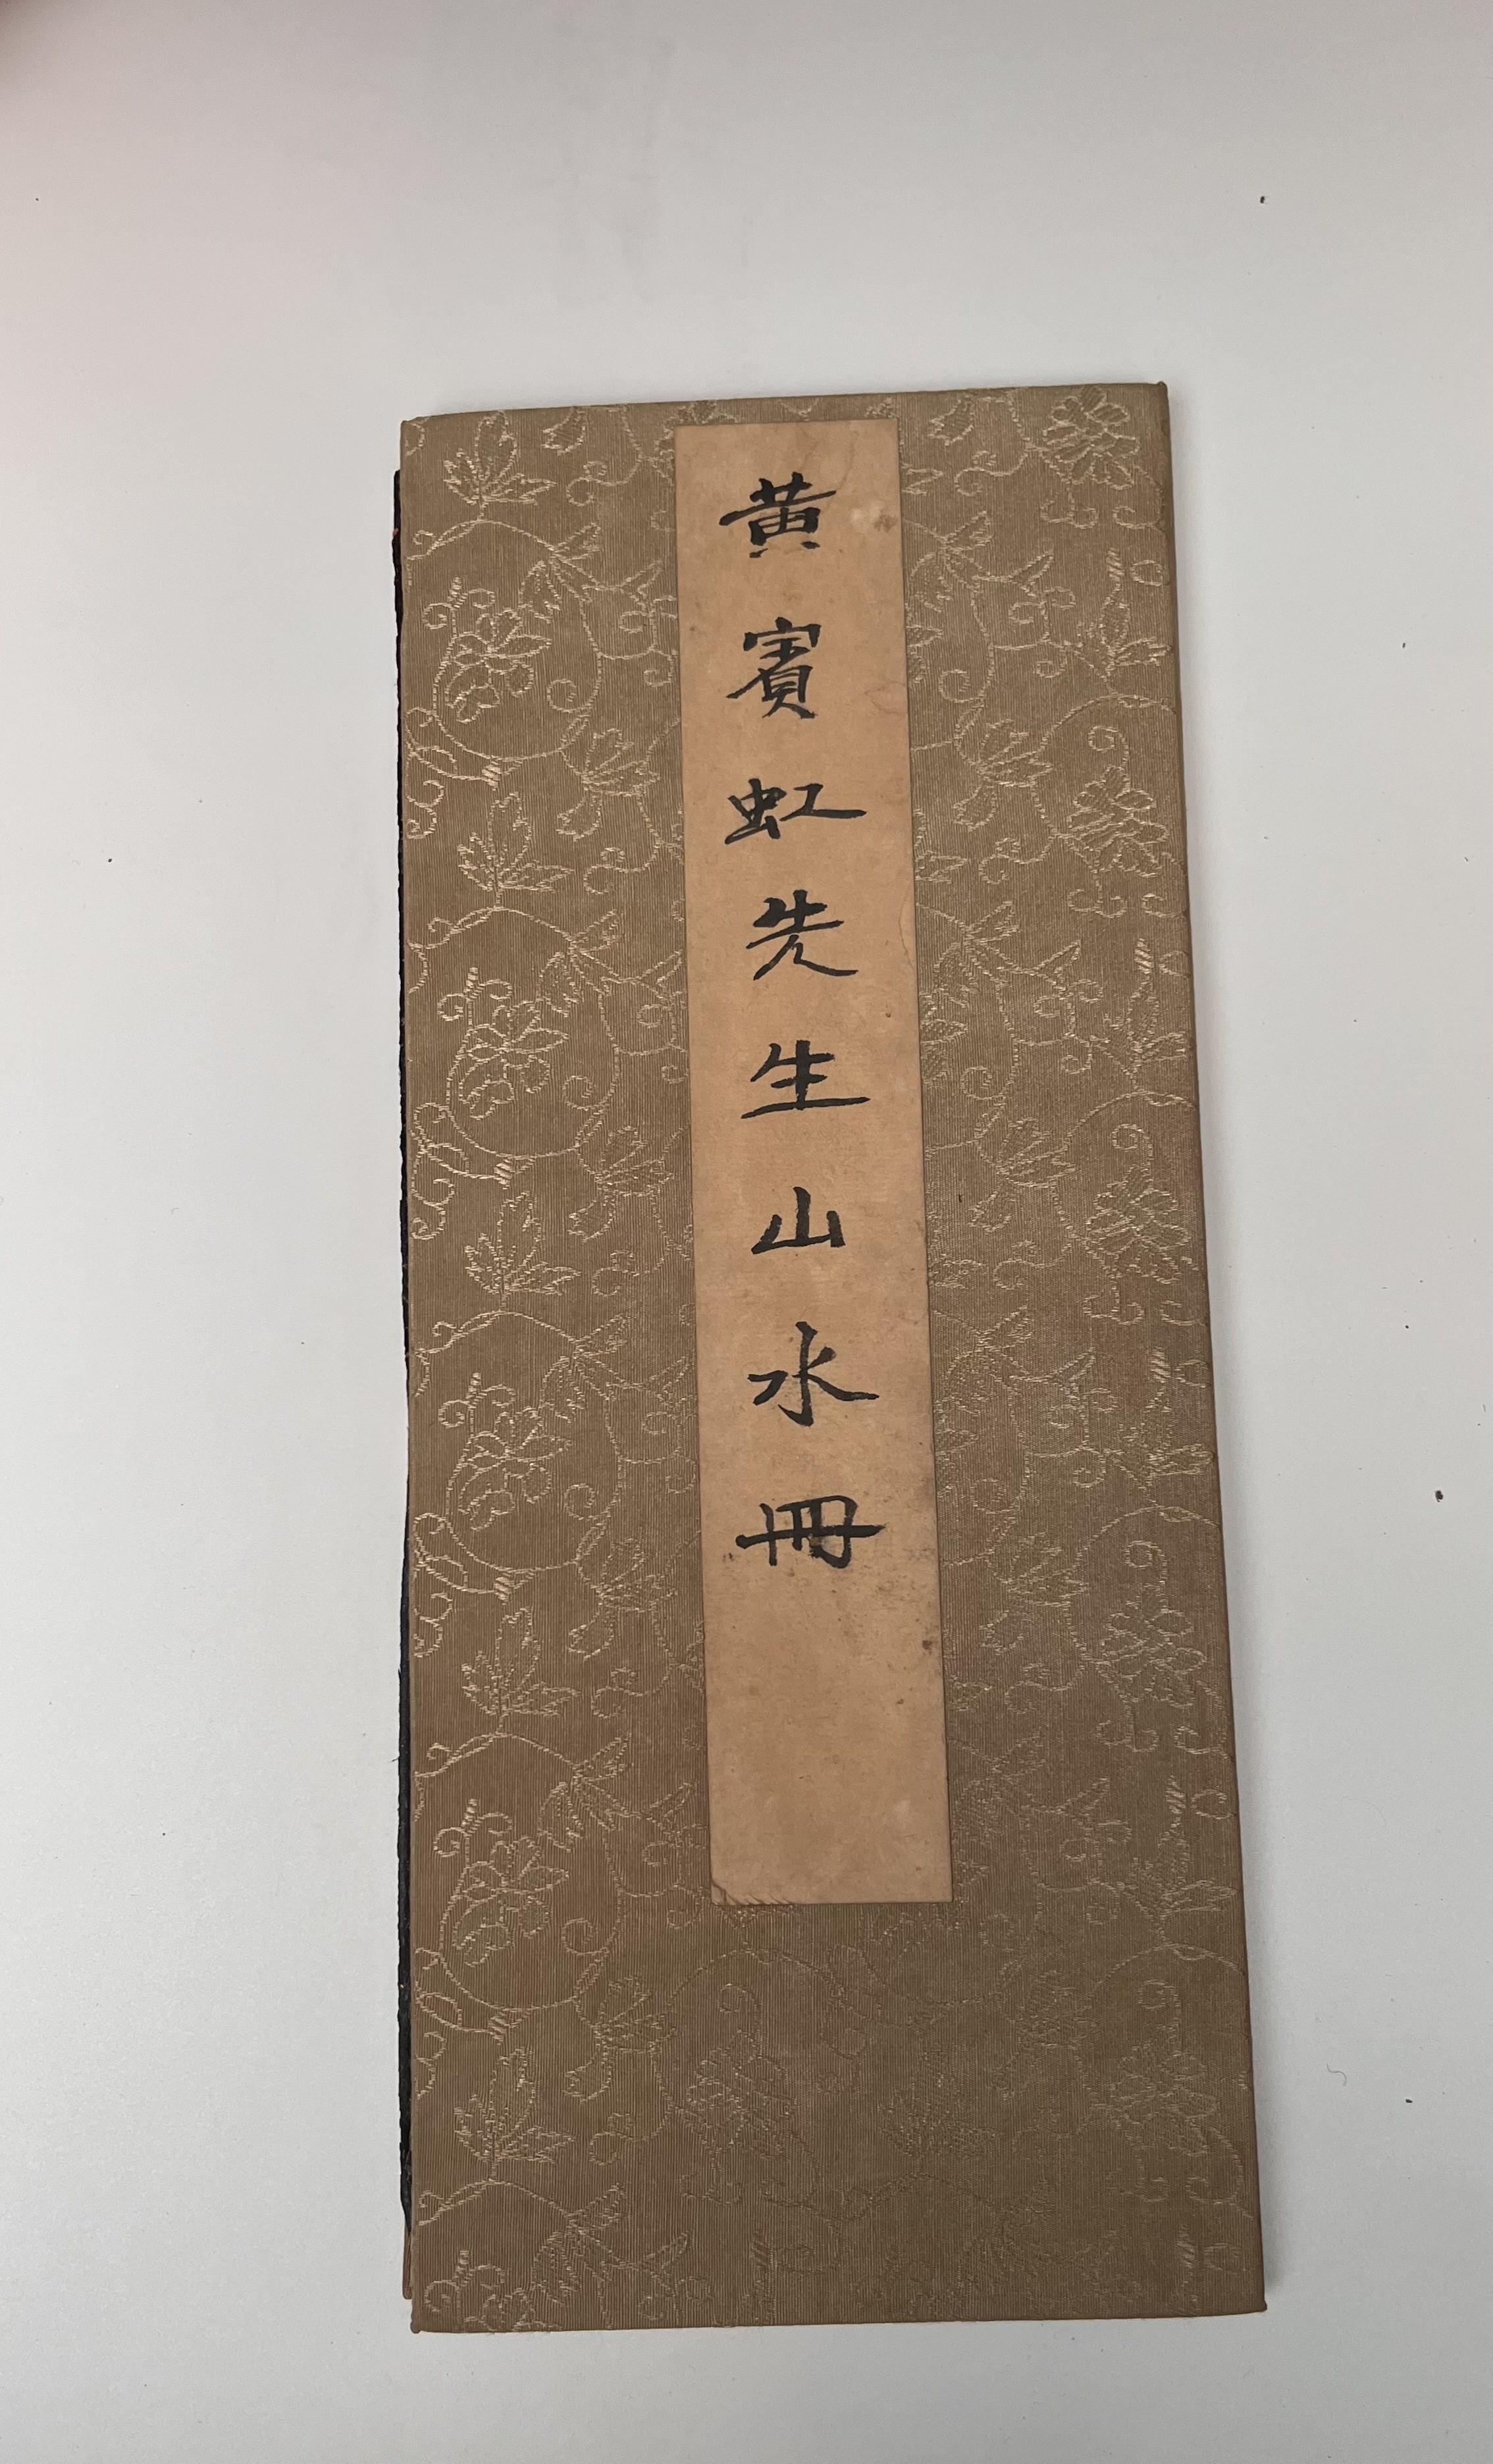 黄賓虹先生山水冊